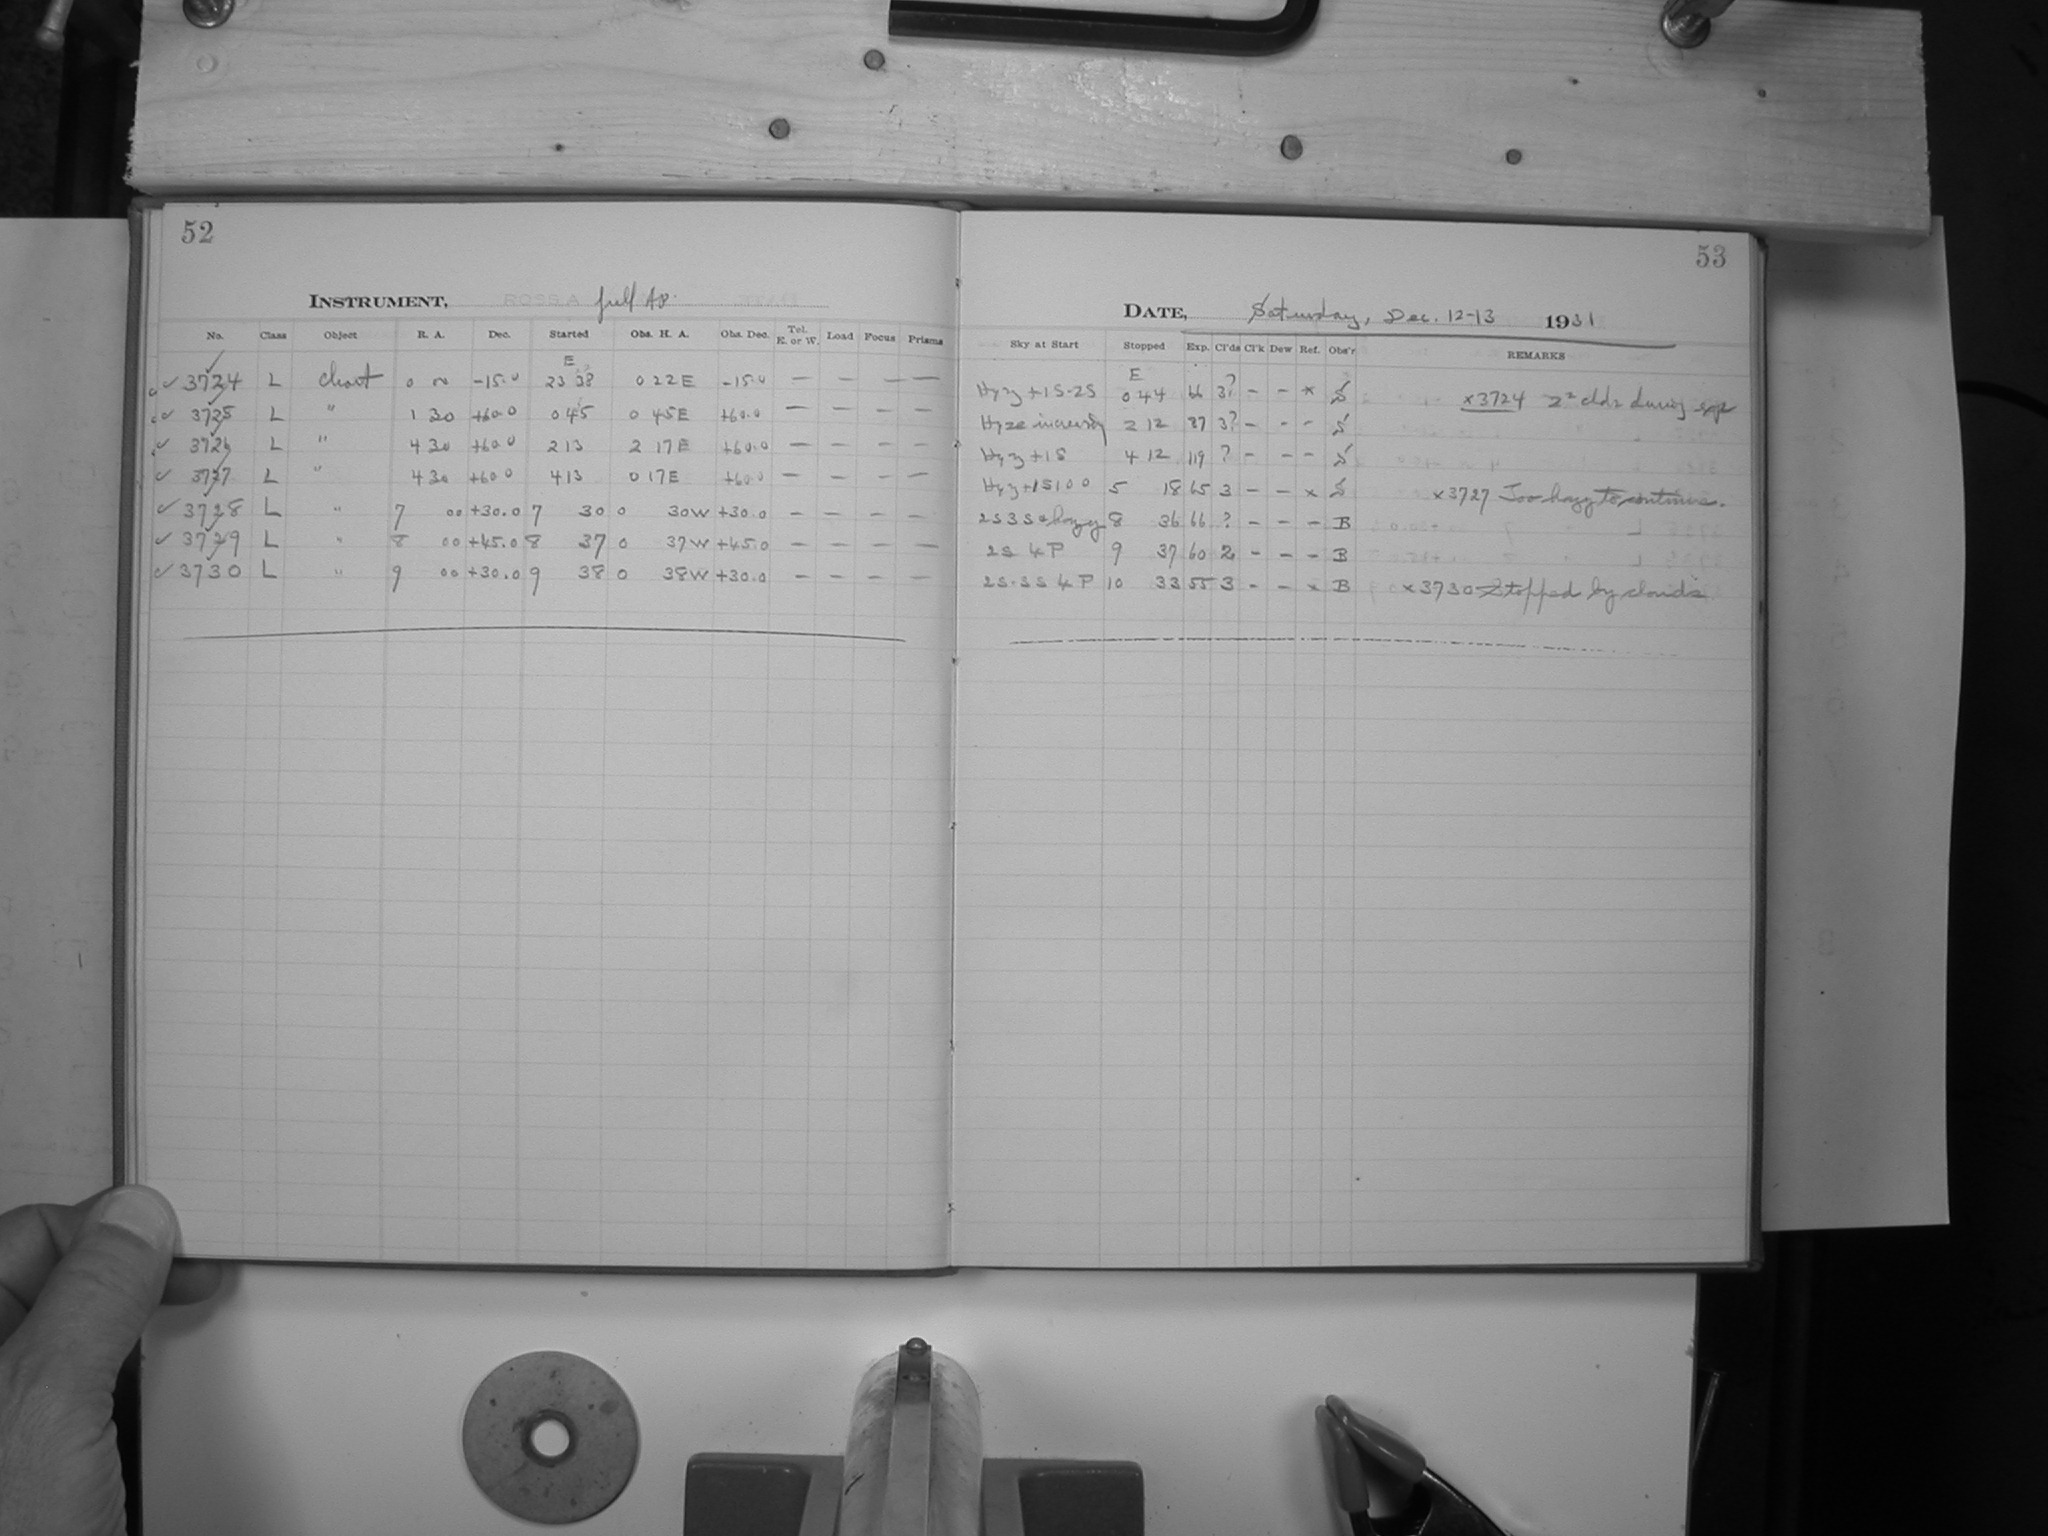 52
INSTRUMENT, full Ap.
No. Class Object R. A. Dec. Started Obs. H. A. Obs. Dec. Tel. E. or W. Load Focus Prisms
E
✓ 3724 L Chart 0 ~ -15.0 23 38 0 22 E -15.0 — — — —
✓ 3725 L " 1 30 +60.0 0 45 0 45 E +60.0 — — — —
✓ 3726 L " 4 30 +60.0 2 13 2 17 E +60.0 — — — —
✓ 3727 L " 4 30 +60.0 4 13 0 17 E +60.0 — — — —
✓ 3728 L " 7 00 +30.0 7 30 0 30 W +30.0 — — — —
✓ 3729 L " 8 00 +45.0 8 37 0 37 W +45.0 — — — —
✓ 3730 L " 9 00 +30.0 9 38 0 38 W +30.0 — — — —
53
DATE, Saturday, Dec. 12-13 1931
Sky at Start Stopped Exp. Cl'ds Cl'k Dew Ref. Obs'r REMARKS
E
Hazy +1S-2S 0 44 66 3? — — x S x3724 clds during exp
Haze increasing 2 12 87 3? — — — S
Hazy +1S 4 12 119 ? — — — S
Hazy +1S 100 5 18 65 3 — — x S x3727 Too hazy to continue.
2S 3S hazy 8 36 66 ? — — — B
2S 4P 9 37 60 2 — — — B
2S-3S 4P 10 33 55 3 — — x B x3730 Stopped by clouds